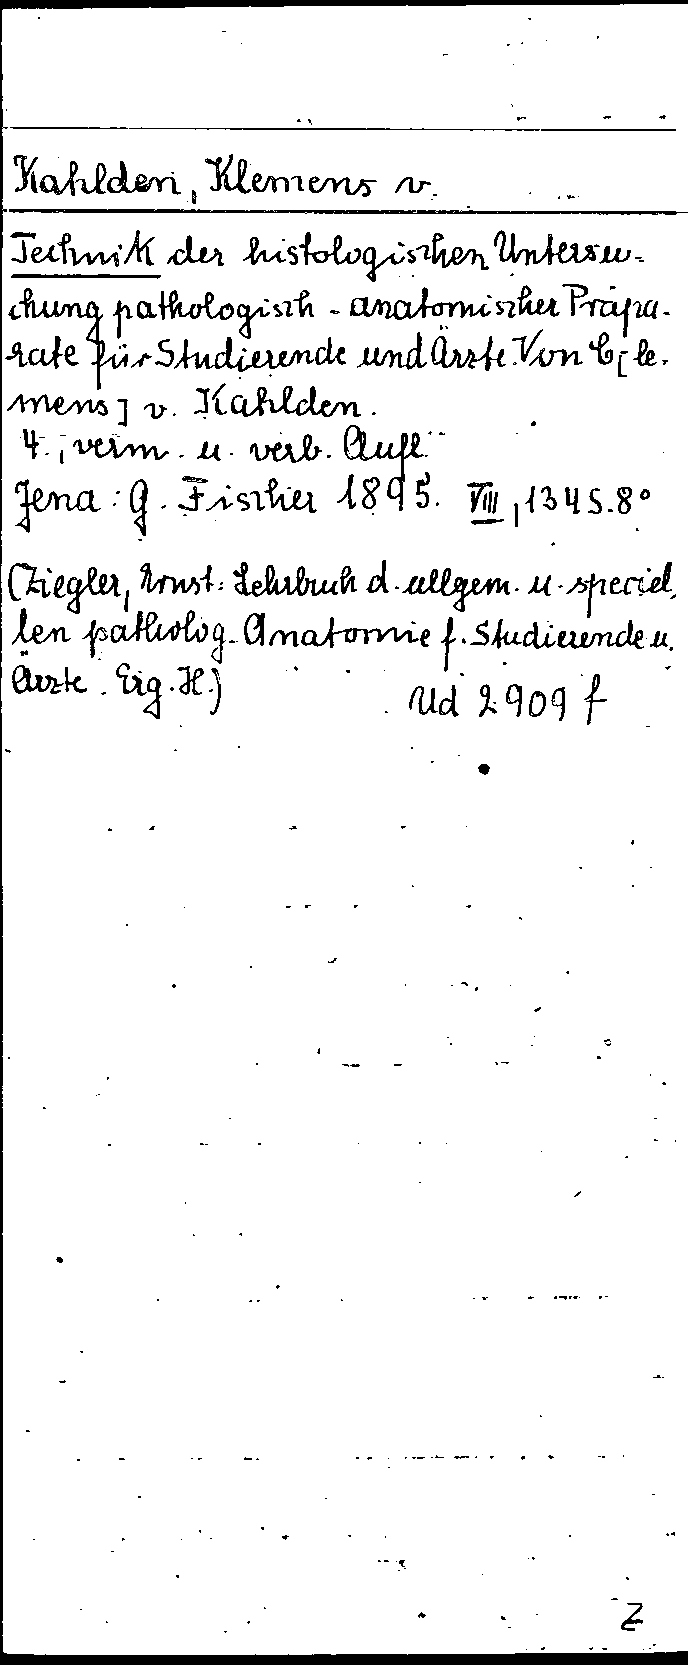 Kahlden, Klemens v.
Technik der histologischen Untersu-
chung pathologisch-anatomischer Präpa-
rate für Studierende und Ärzte. Von C[le-
mens] v. Kahlden.
4., verm. u. verb. Aufl.
Jena: G. Fischer 1895. VIII, 134 S. 8°
(Ziegler, Ernst: Lehrbuch d. allgem. u. speciel-
len patholog. Anatomie f. Studierende u.
Ärzte. Erg. H.)
Ud 2909 f
Z